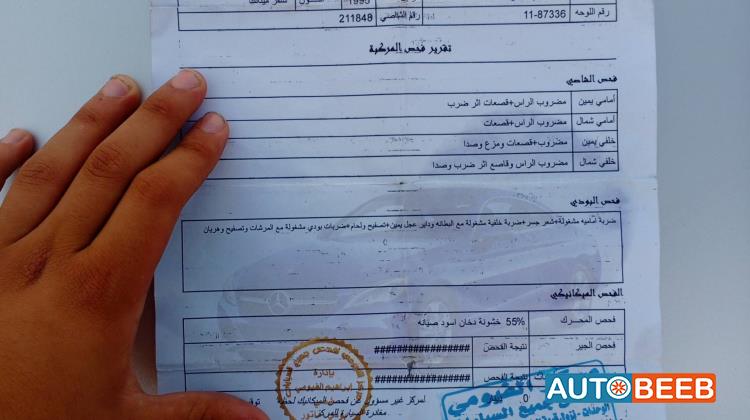 1995
رقم اللوحه 11-87336 رقم الشاصي 211848
تقرير فحص المركبة
فحص الشاصي
أمامي يمين مضروب الراس+قصعات اثر ضرب
أمامي شمال مضروب الراس+قصعات
خلفي يمين مضروب+قصعات ومزع وصدا
خلفي شمال مضروب الراس وقاصع اثر ضرب وصدا
فحص البودي
ضربة أماميه مشغولة+شعر جسر+ضربة خلفية مشغولة مع البطانه وداير عجل يمين+تصفيح ولحام+ضربات بودي مشغولة مع المرشات وتصفيح وهريان
الفحص الميكانيكي
فحص المحرك 55% خشونة دخان اسود صيانه
فحص الجير نتيجة الفحص ################
نتيجة الفحص ################
بإدارة
ابراهيم الفيومي
0 لمركز غير مسؤول عن فحص الميكانيك لحظة
مغادرة السيارة المركز
AUTOBEEB